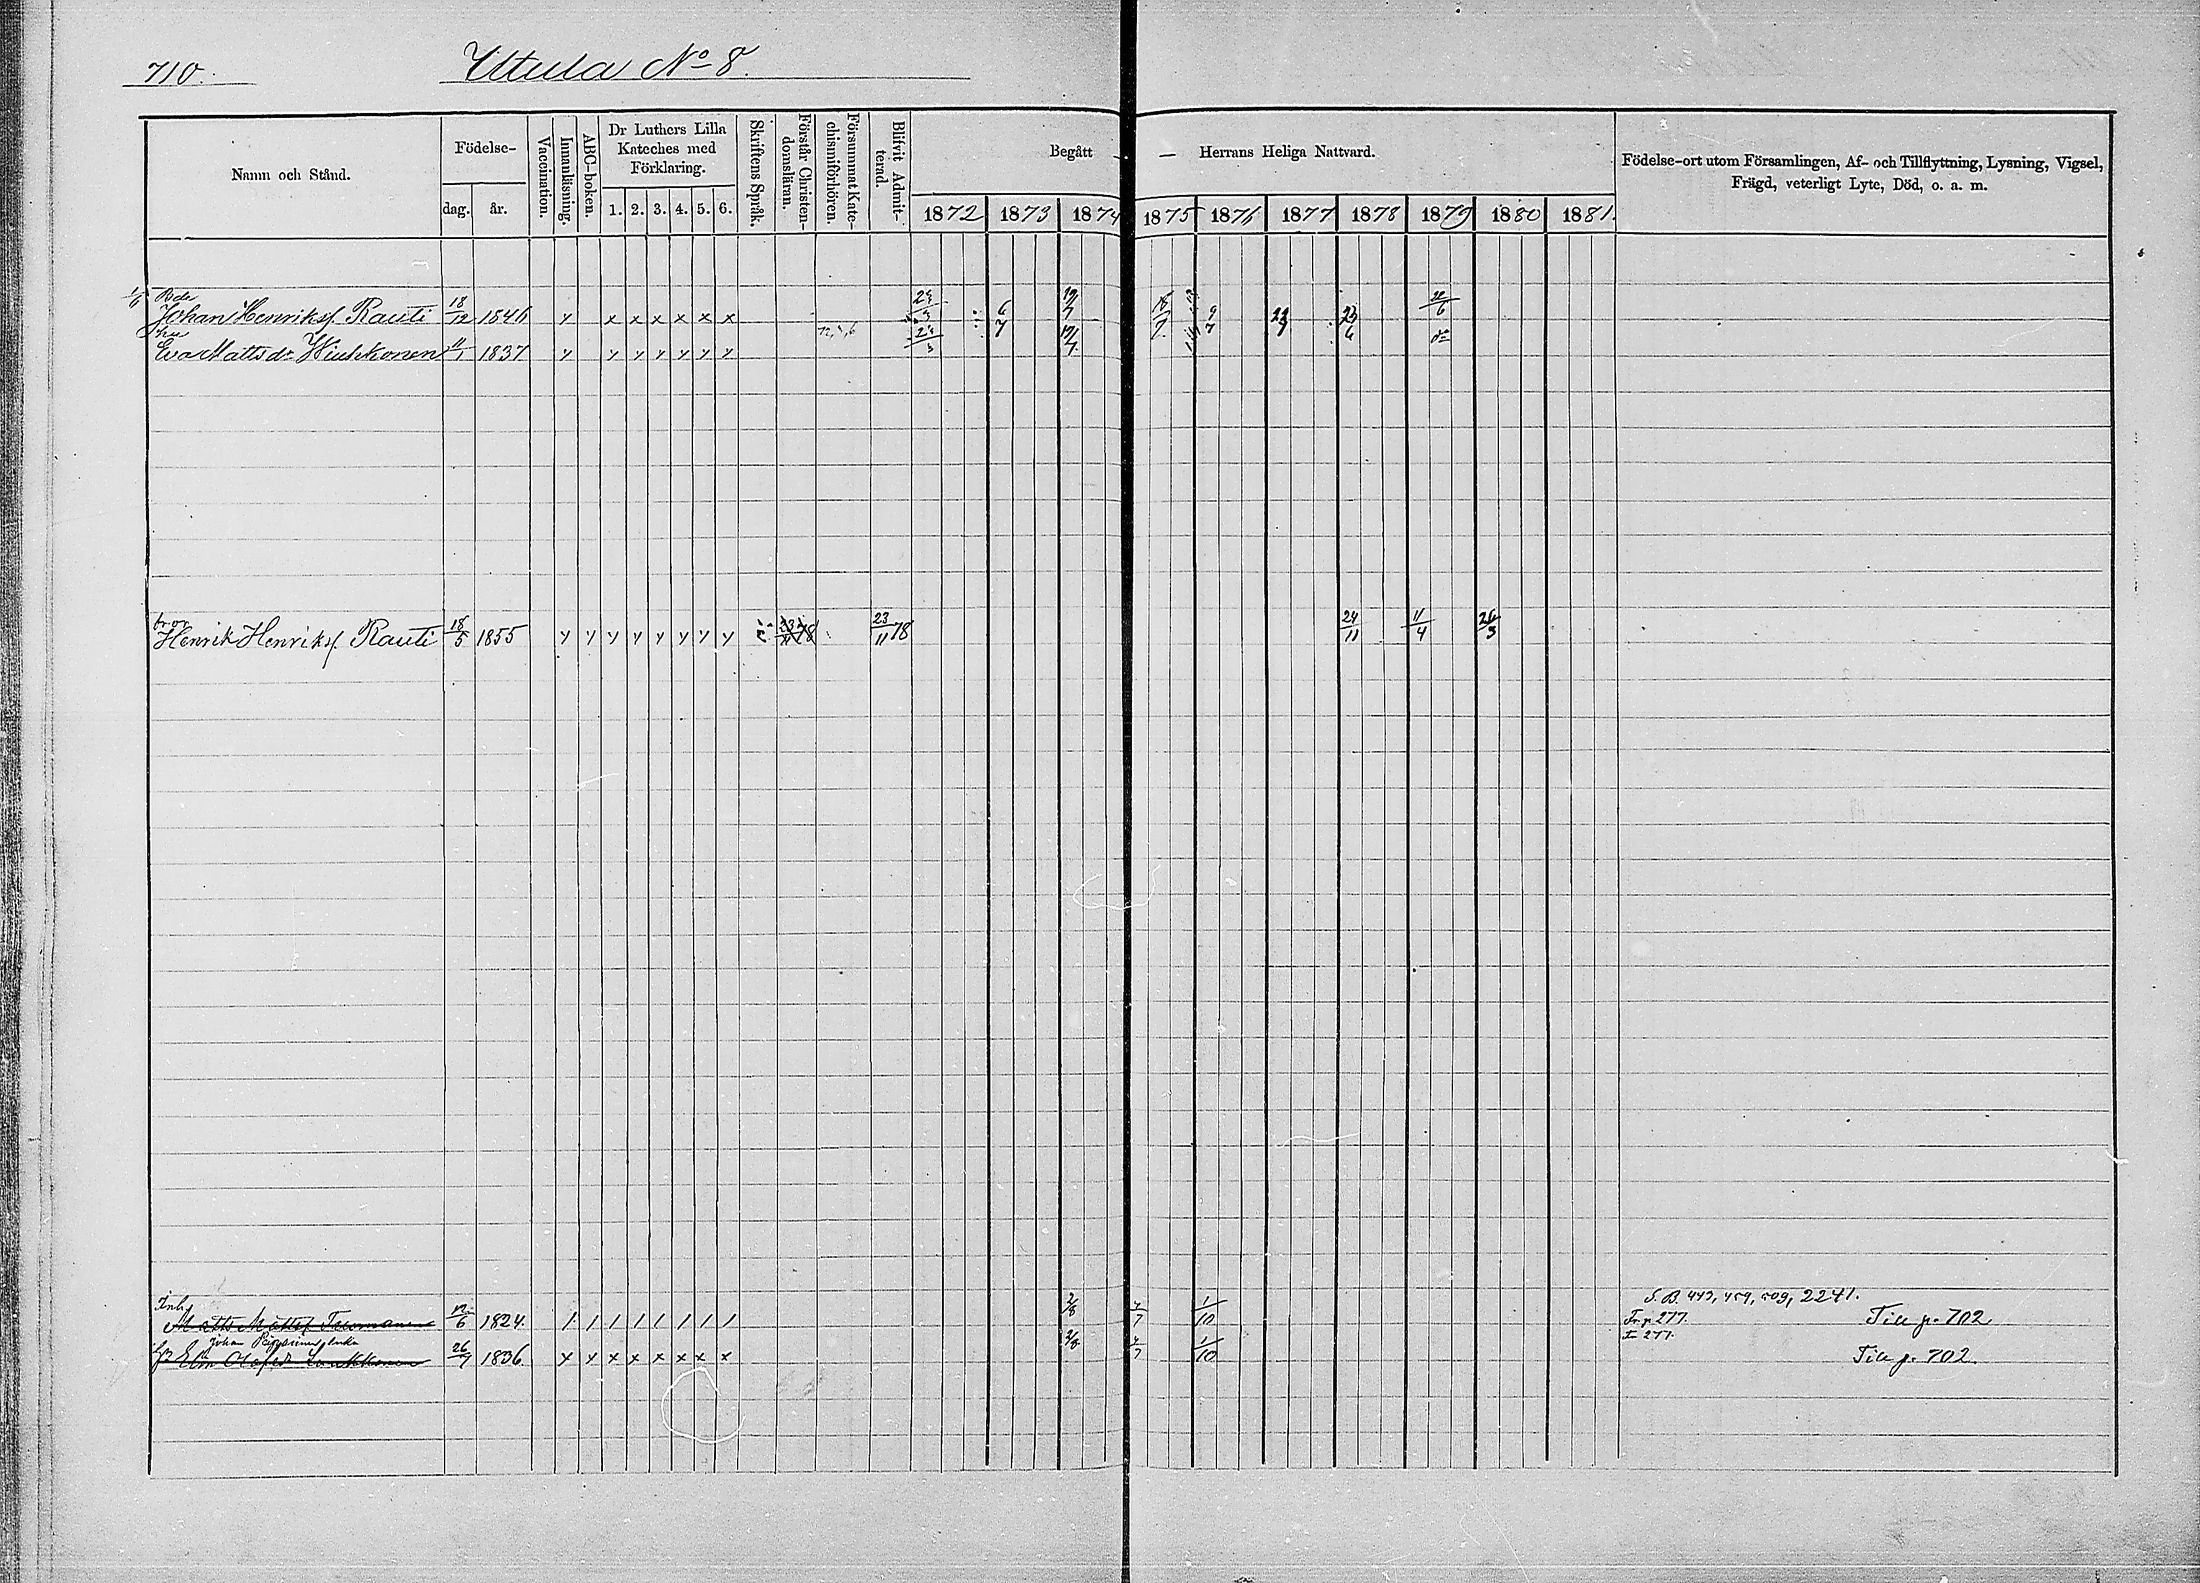 710.
Uttula No 8.
Namn och Stånd.
Födelse-
dag. år.
Vaccination.
Innanläsning.
ABC-boken.
Dr Luthers Lilla
Kateches med
Förklaring.
1. 2. 3. 4. 5. 6.
Skriftens Språk.
Förstår Christen-
domsläran.
Försummat Kate-
chismiförhören.
Blifvit Admit-
terad.
Begått — Herrans Heliga Nattvard.
1872 1873 1874 1875 1876 1877 1878 1879 1880 1881.
Födelse-ort utom Församlingen, Af- och Tillflyttning, Lysning, Vigsel,
Frägd, veterligt Lyte, Död, o. a. m.
Johan Henrikss. Rauti 18/12 1846 y x x x x x x 6/7 9/7 23/6 22/6
Eva Mattsdr Wiuhkonen 11/1 1837 y y y y y y y
bror
Henrik Henrikss. Rauti 18/5 1855 y y y y y y y y 23/11 78 24/11 11/4 26/3
Inh.
Matts Mattss. Tuomanen 12/6 1824. 1 1 1 1 1 1 1 1 2/8 4/7 1/10 S. B. 443, 459, 509, 2241.
Fr. p. 277. Till p. 702
Johan enka
Olofsdr Laukkanen 26/9 1836 x x x x x x x x 2/8 4/7 1/10 277. Till p. 702.